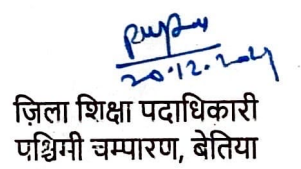 20.12.2024
ज़िला शिक्षा पदाधिकारी
पश्चिमी चम्पारण, बेतिया